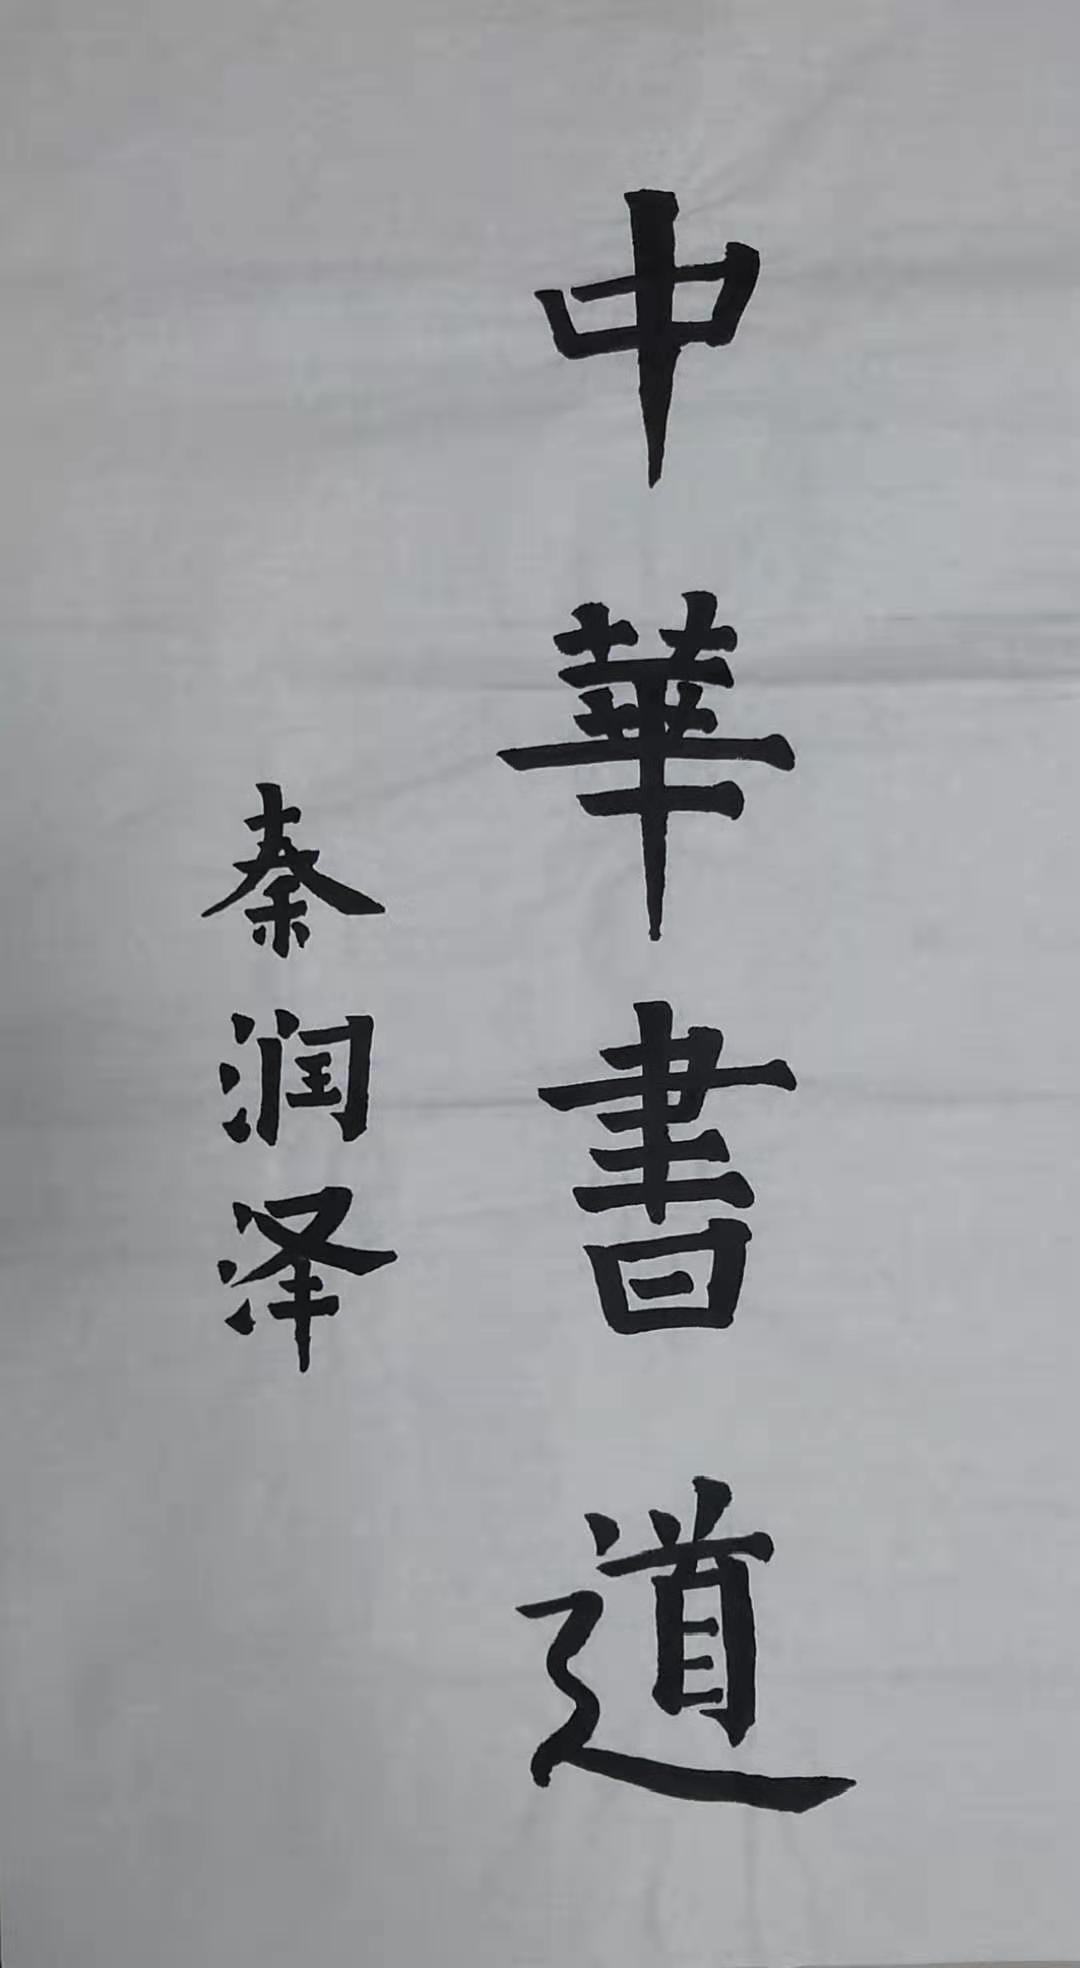 中華書道
秦润泽